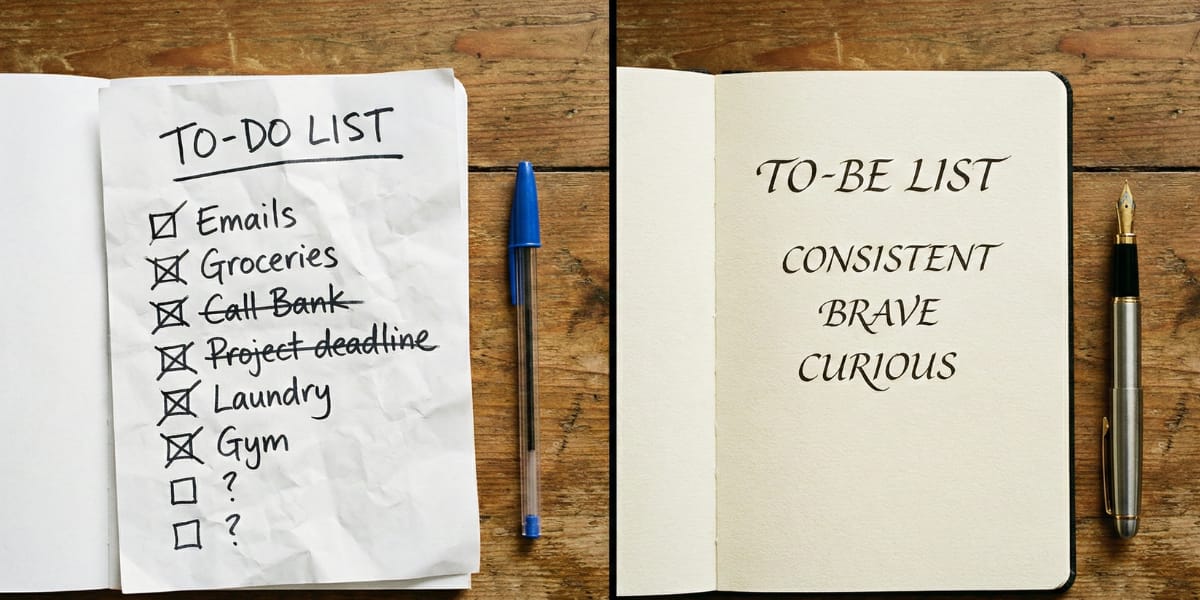 TO-DO LIST
Emails
Groceries
Call Bank
Project deadline
Laundry
Gym
?
?
TO-BE LIST
CONSISTENT
BRAVE
CURIOUS